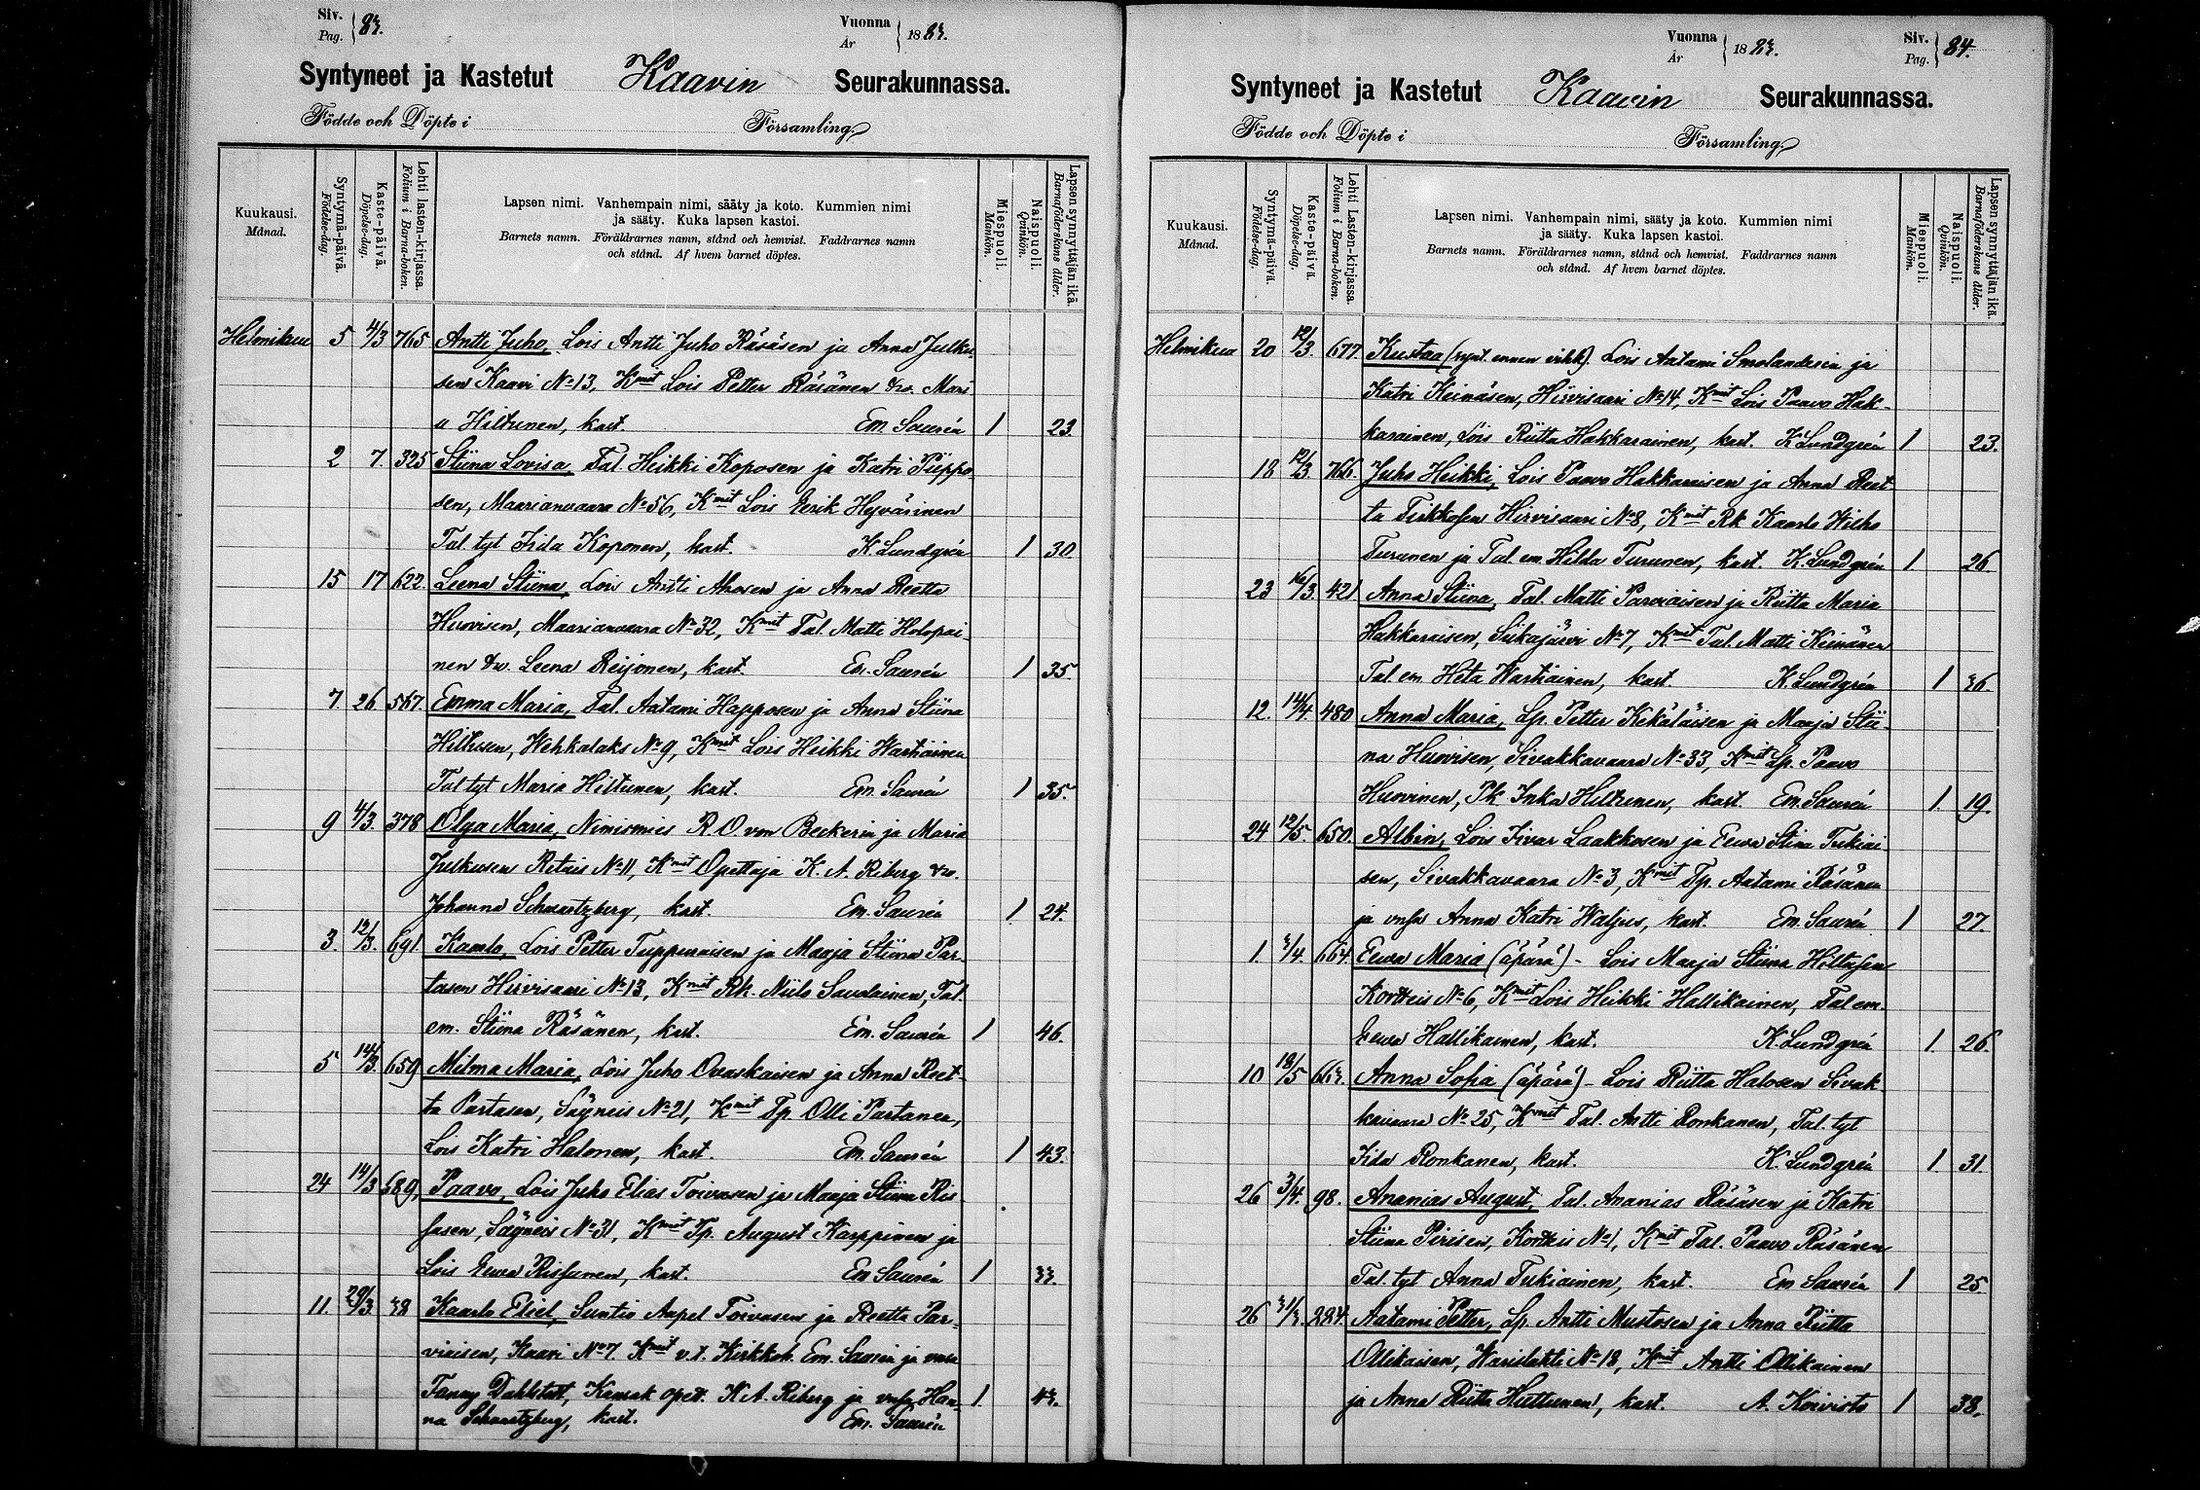 Siv. Pag. 83.
Vuonna År 1883.
Syntyneet ja Kastetut Kaavin Seurakunnassa.
Födde och Döpte i Församling.
Kuukausi. Månad.
Syntymä-päivä. Födelse-dag.
Kaste-päivä. Döpelse-dag.
Lehti lasten-kirjassa. Folium i Barna-boken.
Lapsen nimi. Vanhempain nimi, sääty ja koto. Kummien nimi
ja sääty. Kuka lapsen kastoi.
Barnets namn. Föräldrarnes namn, stånd och hemvist. Faddrarnes namn
och stånd. Af hvem barnet döptes.
Miespuoli. Mankön.
Naispuoli. Qvinkön.
Lapsen synnyttäjän ikä. Barnaföderskans ålder.
Helmikuu 5 4/3 765 Antti Juho, Lois Antti Juho Räsäsen ja Anna Julku
sen Kaavi No 13, Kmit Lois Petter Räsänen &w. Mari
a Hiltunen, kast. Em. Saurén 1 23.
2 7. 325 Stiina Lovisa, Tal. Heikki Koposen ja Katri Piippo
sen, Maarianvaara No 56, Kmit Lois Eerik Hyvärinen
Tal. tyt Iida Koponen, kast. K. Lundgrén 1 30
15 17 622. Leena Stiina, Lois Antti Ahosen ja Anna Reetta
Huovisen, Maarianvaara No 32, Kmit Tal. Matti Holopai-
nen &w. Leena Reijonen, kast. Em. Saurén 1 35.
7 26 567. Emma Maria, Tal. Aatami Happosen ja Anna Stiina
Hiltusen, Wehkalaks No 9, Kmit Lois Heikki Wartiainen
Tal tyt Maria Hiltunen, kast. Em. Saurén 1 35.
9 4/3. 378 Olga Maria, Nimismies R. O. von Beckerin ja Maria
Julkusen Retais No 11, Kmit Opettaja K. A. Riberg &w.
Johanna Schwartzberg, kast. Em. Saurén 1 24.
3. 12/3. 691. Kaarlo, Lois Petter Tuppuraisen ja Maaja Stiina Par-
tasen Hirvisaari No 13, Kmit Rk. Niilo Saudainen, Tal.
em. Stiina Räsänen, kast. Em. Saurén 1 46.
5 14/3. 659 Milma Maria, Lois Juho Ovaskaisen ja Anna Reet-
ta Partasen, Säyneis No 21, Kmit Tp. Olli Partanen,
Lois Katri Halonen, kast. Em. Saurén 1 43.
24 14/3 689, Paavo, Lois Juho Elias Toivasen ja Maaja Stiina Ris
sasen, Säyneis No 31, Kmit Tp. August Karppinen ja
Lois Eewa Rissanen, kast. Em Saurén 1 33.
11. 29/3. 38 Kaarlo Eliel, Suntio Aapel Toivasen ja Reetta Par-
viaisen, Kaavi No 7. Kmit v.t. Kirkkoh. Em. Saurén ja
Fanny Dahlstet, Kansak opett. K. A. Riberg ja vmfa Han- 1. 43.
na Schwartzberg, kast. Em. Saurén
Vuonna År 1883.
Siv. Pag. 84.
Syntyneet ja Kastetut Kaavin Seurakunnassa.
Födde och Döpte i Församling.
Kuukausi. Månad.
Syntymä-päivä. Födelse-dag.
Kaste-päivä. Döpelse-dag.
Lehti Lasten-kirjassa. Folium i Barna-boken.
Lapsen nimi. Vanhempain nimi, sääty ja koto. Kummien nimi
ja sääty. Kuka lapsen kastoi.
Barnets namn. Föräldrarnes namn, stånd och hemvist. Faddrarnes namn
och stånd. Af hvem barnet döptes.
Miespuoli. Mankön.
Naispuoli. Qvinkön.
Lapsen synnyttäjän ikä. Barnaföderskans ålder.
Helmikuu 20 12/3. 677. Kustaa (synt. ennen vihk). Lois Aatami Smolandesin ja
Katri Keinäsen, Hirvisaari No 14, Kmit Lois Paavo Hak-
karainen, Lois Riitta Hakkarainen, kast. K. Lundgrén 1 23.
18 12/3. 766. Juho Heikki, Lois Paavo Hakkaraisen ja Anna Reet-
ta Tirkkosen Hirvisaari No 8, Kmit Rk Kaarlo Wilho
Turunen ja Tal em. Hilda Turunen, kast. K. Lundgrén 1 26.
23 16/3. 421 Anna Stiina, Tal. Matti Parviaisen ja Riitta Maria
Hakkaraisen, Siikajärvi No 7, Kmit Tal. Matti Keinänen
Tal em. Heta Wartiainen, kast. K. Lundgrén 1 36.
12. 14/4. 480 Anna Maria, Lp. Petter Kekäläisen ja Maaja Stii-
na Huovisen, Sivakkavaara No 33, Kmit Lp. Paavo
Huovinen, Pk Inka Hiltunen, kast. Em. Saurén 1. 19.
24 12/5. 650. Albin, Lois Iivar Laakkosen ja Eewa Stina Tukiai
sen, Sivakkavaara No 3, Kmit Tp. Aatami Räsänen
ja vmfa Anna Katri Waljus, kast. Em. Saurén 1 27.
1. 3/4. 664. Eewa Maria (äpärä) - Lois Maaja Stiina Hiltusen
Kortteis No 6, Kmit Lois Heikki Hallikainen, Tal em.
Eewa Hallikainen, kast. K. Lundgrén 1. 26.
10 18/5 663. Anna Sofia (äpärä) - Lois Riitta Halosen Sivak
kavaara No 25, Kmit Tal. Antti Ronkanen, Tal. tyt
Iida Ronkanen, kast. K. Lundgrén 1 31.
26 3/4. 98. Ananias August, Tal. Ananias Räsäsen ja Katri
Stiina Pirisen, Kortteis No 1, Kmit Tal. Paavo Räsänen
Tal. tyt Anna Tukiainen, kast. Em Saurén 1 25
26 31/3. 284. Aatami Petter, Lp. Antti Mustosen ja Anna Riitta
Ollikaisen, Warislahti No 18, Kmit Antti Ollikainen
ja Anna Riitta Huttunen, kast. A. Koivisto 1 38.